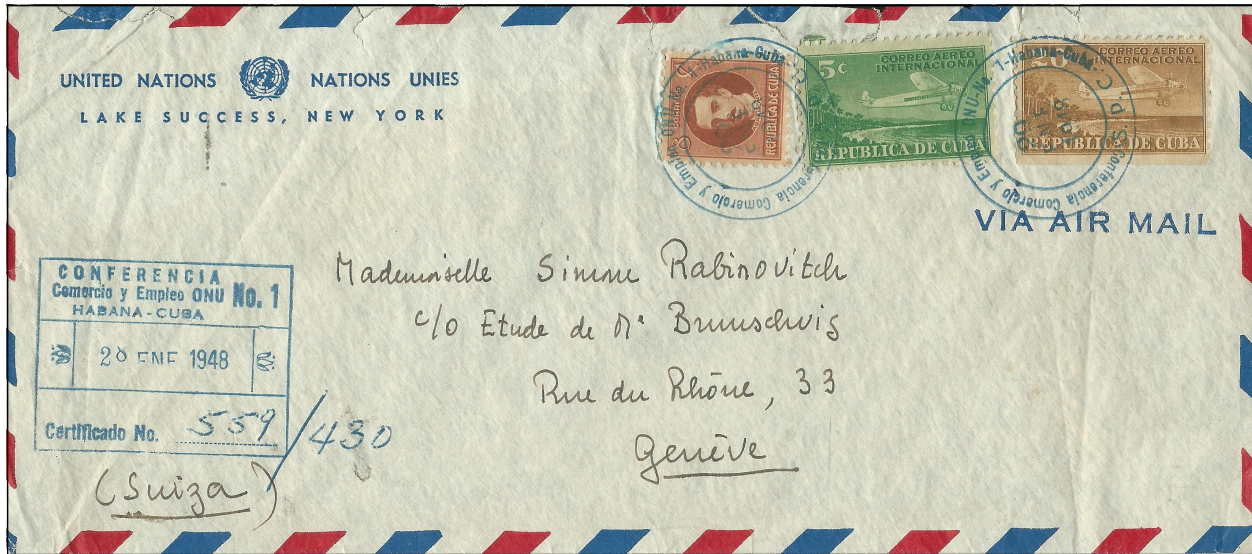 UNITED NATIONS NATIONS UNIES
LAKE SUCCESS, NEW YORK
CORREOS
REPUBLICA DE CUBA
5¢ CORREO AEREO
INTERNACIONAL
REPUBLICA DE CUBA
20 CORREO AEREO
INTERNACIONAL
REPUBLICA DE CUBA
Conferencia Comercio y Empleo ONU-No. 1-Habana-Cuba
Conferencia Comercio y Empleo ONU-No. 1-Habana-Cuba
VIA AIR MAIL
CONFERENCIA
Comercio y Empleo ONU No. 1
HABANA-CUBA
28 ENE 1948
Certificado No. 559/430
Mademoiselle Simone Rabinovitch
c/o Etude de Me Brunschvig
Rue du Rhône, 33
Genève
(Suiza)